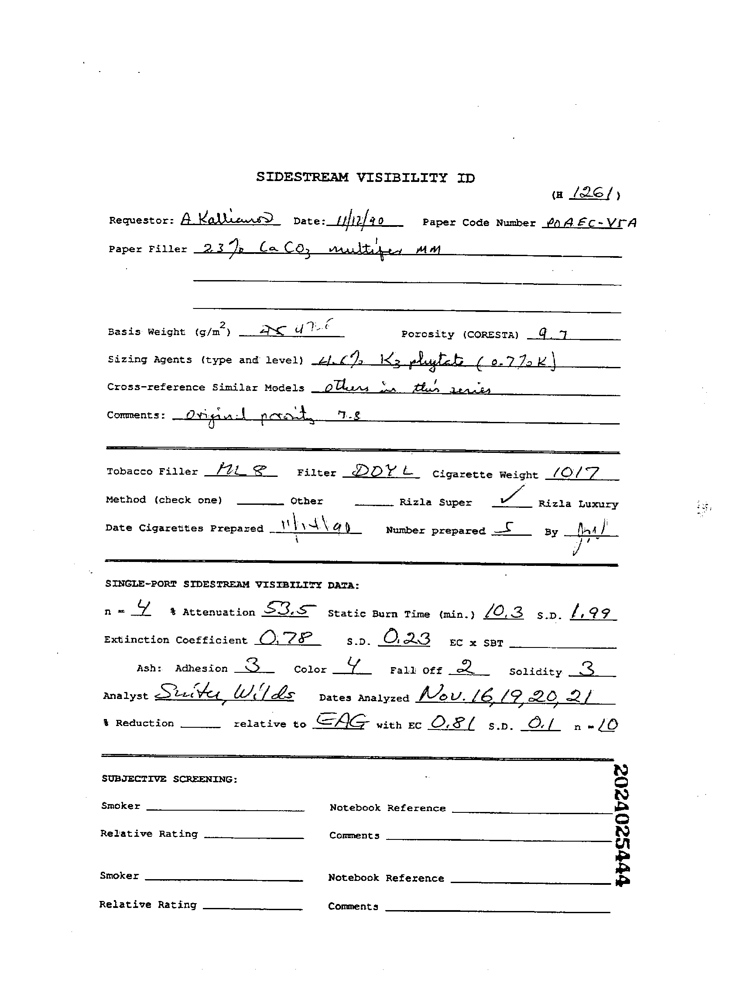 SIDESTREAM VISIBILITY ID
(H 1261)
Requestor: A Kallianos Date: 11/12/90 Paper Code Number
Paper Filler 23% CaCO3 multifex MM
Basis Weight (g/m2) Porosity (CORESTA) 9.7
Sizing Agents (type and level) K3 phytate (0.7% K)
Cross-reference Similar Models others in this series
Comments: Original porosity 7.8
Tobacco Filler Filter DOYL Cigarette Weight 1017
Method (check one) Other Rizla Super ✓ Rizla Luxury
Date Cigarettes Prepared Number prepared 5 By
SINGLE-PORT SIDESTREAM VISIBILITY DATA:
n = 4 % Attenuation 53.5 Static Burn Time (min.) 10.3 S.D. 1.99
Extinction Coefficient 0.78 S.D. 0.23 EC x SBT
Ash: Adhesion 3 Color 4 Fall Off 2 Solidity 3
Analyst Wilds Dates Analyzed Nov. 16, 19, 20, 21
% Reduction relative to EAG with EC 0.81 S.D. 0.1 n = 10
SUBJECTIVE SCREENING:
Smoker Notebook Reference
Relative Rating Comments
Smoker Notebook Reference
Relative Rating Comments
2024025444